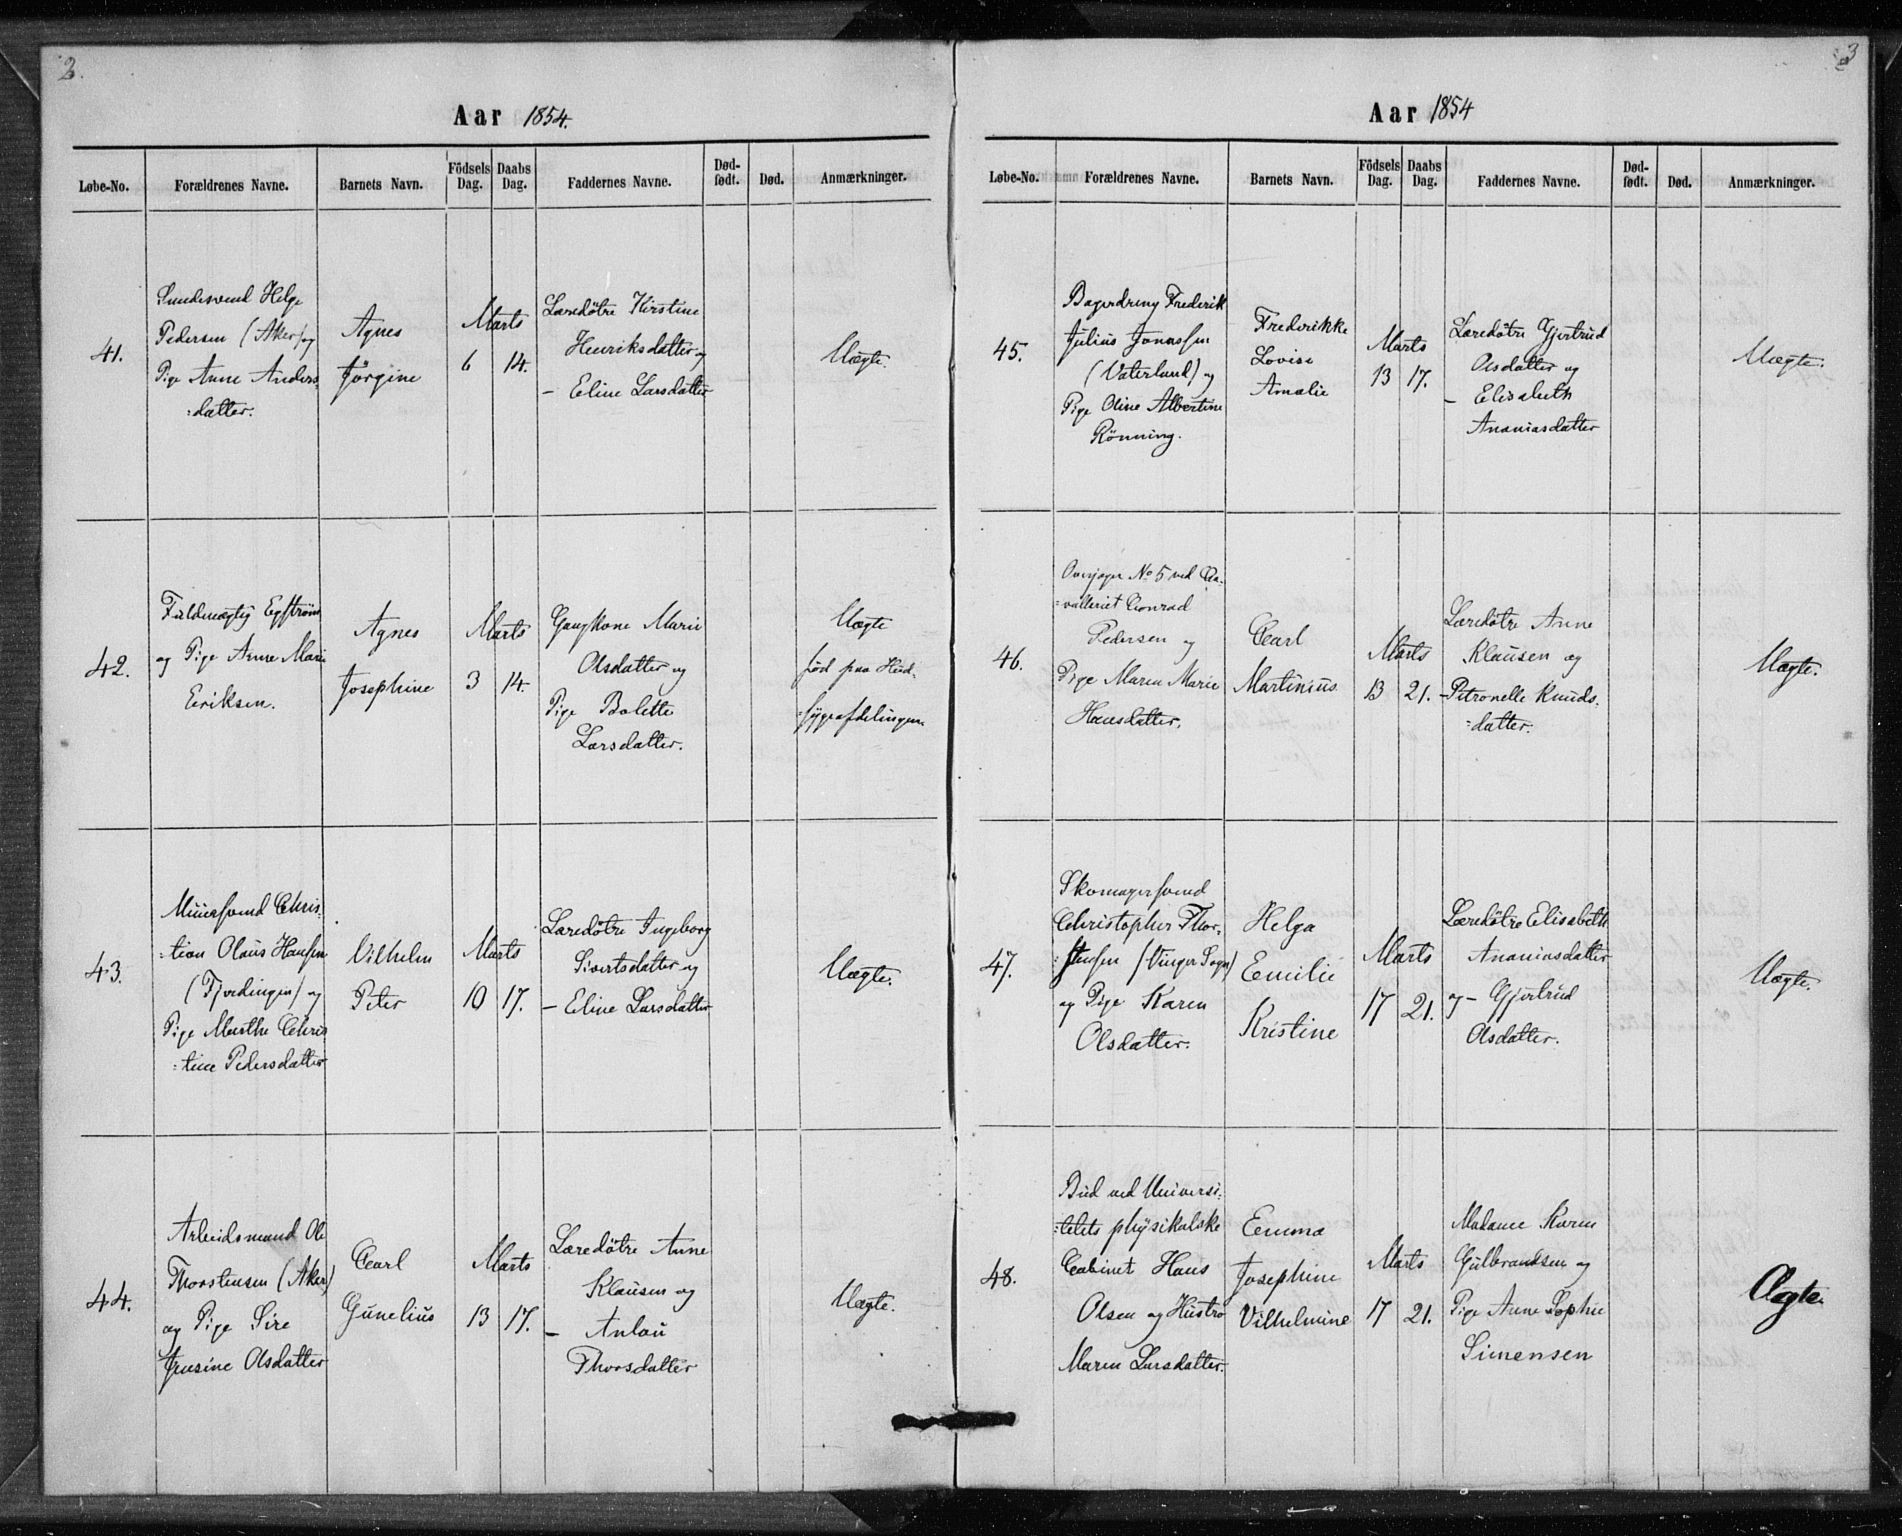 2.
Aar 1854.
Løbe-No. Forældrenes Navne. Barnets Navn. Födsels Dag. Daabs Dag. Faddernes Navne. Død-født. Død. Anmærkninger.
41.
Smedesvend Helge
Pedersen (Aker) og
Pige Anne Anders
=datter.
Agnes
Jörgine
Marts
6 14.
Læredöttre Kirstine
Henriksdatter og
- Eline Larsdatter
Uægte.
42.
Fuldmægtig Egström
og Pige Anne Marie
Eriksen.
Agnes
Josephine
Marts
3 14.
Gangkone Marie
Olsdatter og
Pige Bolette
Larsdatter.
Uægte
fød paa Hud-
=sygeafdelingen
43.
Muursvend Chris-
=tian Olaus Hansen
(Fjerdingen) og
Pige Marthe Chris
=tine Pedersdatter
Vilhelm
Peter
Marts
10 17.
Læredötre Ingeborg
Sivertsdatter og
- Eline Larsdatter
Uægte.
44.
Arbeidsmand Ole
Thorstensen (Aker)
og Pige Sire
Olsdatter
Carl
Gunelius
Marts
13 17.
Læredötre Anne
Klausen og
- Anlaü
Thorsdatter
Uægte.
3
Aar 1854
Løbe-No. Forældrenes Navne. Barnets Navn. Födsels Dag. Daabs Dag. Faddernes Navne. Død-født. Død. Anmærkninger.
45.
Bagerdreng Frederik
Julius Jonassen
(Vaterland) og
Pige Oline Albertine
Rönning.
Frederikke
Lovise
Amalie
Marts
13 17.
Læredötre Gjertrud
Olsdatter og
- Elisabeth
Ananiasdatter
Uægte.
46.
Overjæger No 5 ved Ca-
=valleriet Conrad
Pedersen og
Pige Maren Marie
Hansdatter.
Carl
Martinius
Marts
13 21.
Læredötre Anne
Klausen og
- Petronelle Knuds-
=datter.
Uægte.
47.
Skomagersvend
Christopher Thor-
=stensen (Vinger Sogn)
og Pige Karen
Olsdatter.
Helga
Emilie
Kristine
Marts
17 21.
Læredötre Elisabeth
Ananiasdatter
og - Gjertrud
Olsdatter.
Uægte.
48.
Bud ved Universi-
=tetets physikalske
Cabinet Hans
Olsen og Hustro
Maren Larsdatter.
Emma
Josephine
Vilhelmine
Marts
17 21.
Madame Karen
Gulbrandsen og
Pige Anne Sophie
Simensen
Ægte